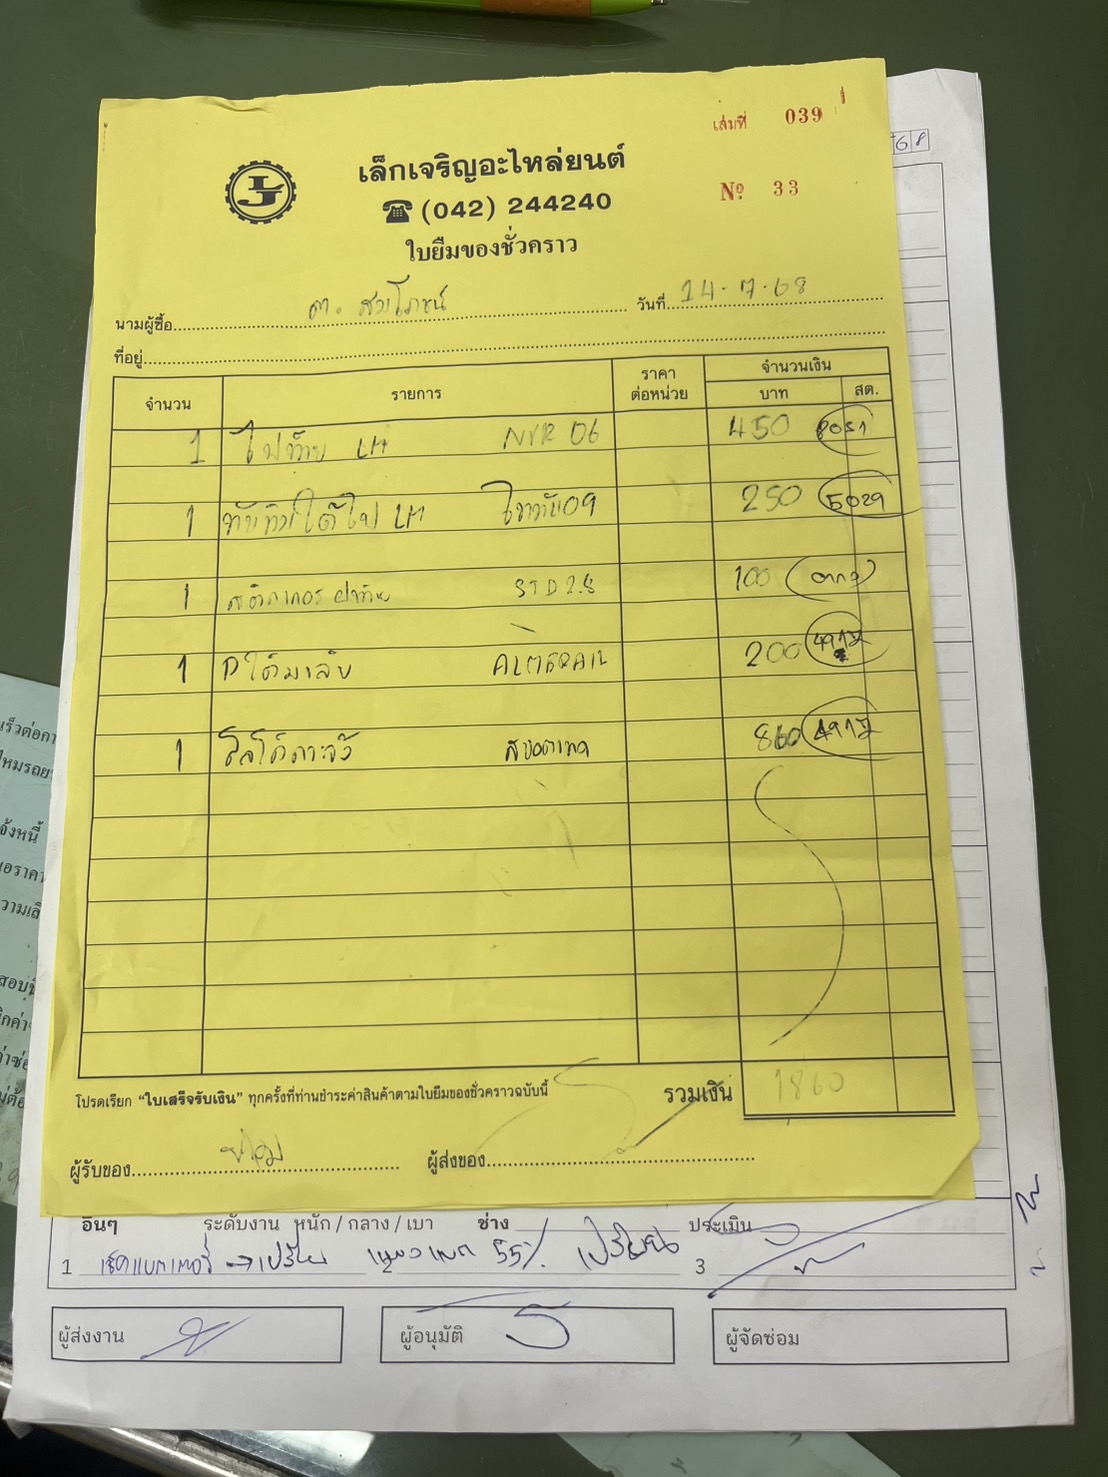 เล่มที่ 039
LJ
เล็กเจริญอะไหล่ยนต์
☎ (042) 244240
№ 33
ใบยืมของชั่วคราว
68
นามผู้ซื้อ วันที่ 14.7.68
ที่อยู่
จำนวน รายการ ราคาต่อหน่วย จำนวนเงิน
บาท สต.
1 ไฟท้าย LH NVR 06 450 8051
1 ทับทิมใต้ไฟ LH 09 250 5029
1 สติกเกอร์ ฝาท้าย STD 2.8 100
1 ALMERA 12 200 4917
1 860 4917
โปรดเรียก "ใบเสร็จรับเงิน" ทุกครั้งที่ท่านชำระค่าสินค้าตามใบยืมของชั่วคราวฉบับนี้ รวมเงิน 1860
ผู้รับของ ผู้ส่งของ
อื่นๆ ระดับงาน หนัก / กลาง / เบา ช่าง ประเมิน
1 เช็คแบตเตอรี่ 55% 3
ผู้ส่งงาน ผู้อนุมัติ ผู้จัดซ่อม